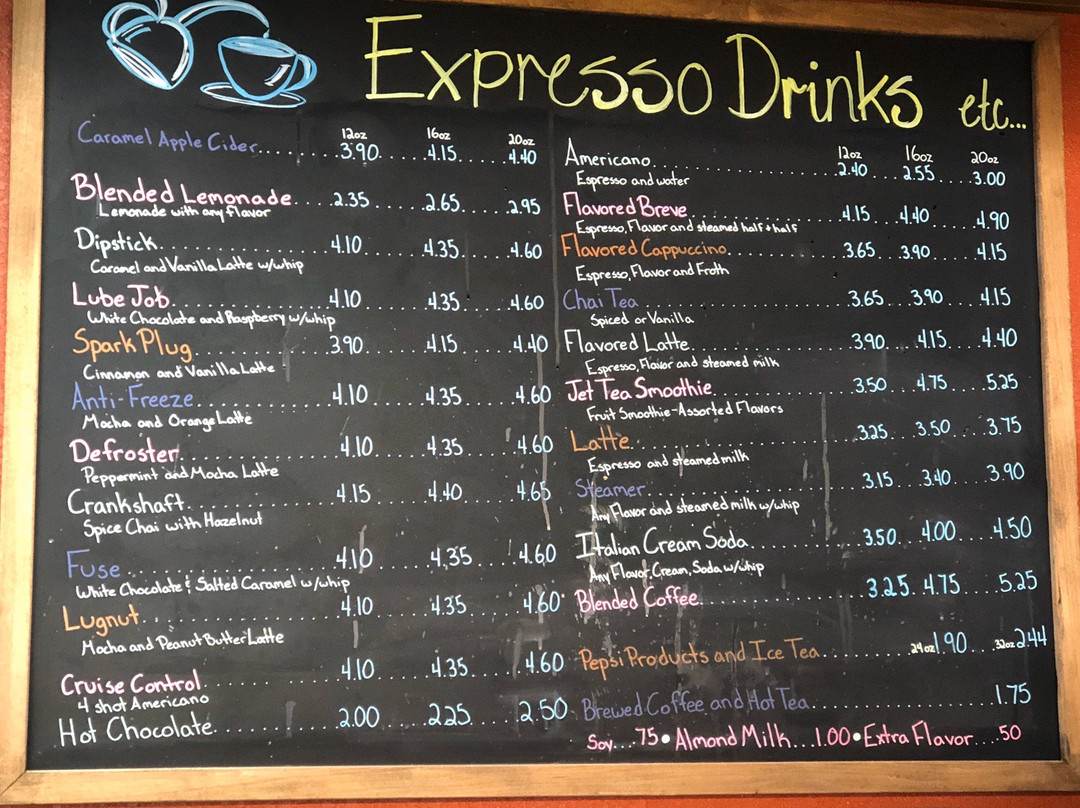 Expresso Drinks etc...
12oz 16oz 20oz
Caramel Apple Cider......3.90.....4.15.....4.40
Blended Lemonade....2.35.....2.65.....2.95
Lemonade with any flavor
Dipstick..........4.10.....4.35.....4.60
Caramel and Vanilla Latte w/whip
Lube Job..........4.10.....4.35.....4.60
White Chocolate and Raspberry w/whip
Spark Plug..........3.90.....4.15.....4.40
Cinnamon and Vanilla Latte
Anti-Freeze..........4.10.....4.35.....4.60
Mocha and Orange Latte
Defroster..........4.10.....4.35.....4.60
Peppermint and Mocha Latte
Crankshaft..........4.15.....4.40.....4.65
Spice Chai with Hazelnut
Fuse..........4.10.....4.35.....4.60
White Chocolate & Salted Caramel w/whip
Lugnut..........4.10.....4.35.....4.60
Mocha and Peanut Butter Latte
Cruise Control..........4.10.....4.35.....4.60
4 shot Americano
Hot Chocolate..........2.00.....2.25.....2.50
12oz 16oz 20oz
Americano..........2.40....2.55....3.00
Espresso and water
Flavored Breve..........4.15...4.40....4.90
Espresso, Flavor and steamed half + half
Flavored Cappuccino..........3.65...3.90....4.15
Espresso, Flavor and Froth
Chai Tea..........3.65...3.90....4.15
Spiced or Vanilla
Flavored Latte..........3.90...4.15....4.40
Espresso, Flavor and steamed milk
Jet Tea Smoothie..........3.50...4.75....5.25
Fruit Smoothie-Assorted Flavors
Latte..........3.25...3.50....3.75
Espresso and steamed milk
Steamer..........3.15...3.40....3.90
Any Flavor and steamed milk w/whip
Italian Cream Soda..........3.50...4.00....4.50
Any Flavor, Cream, Soda w/whip
Blended Coffee..........3.25.4.75....5.25
Pepsi Products and Ice Tea..........24oz 1.90 ...32oz 2.44
Brewed Coffee and Hot Tea..........1.75
Soy...75•Almond Milk...1.00•Extra Flavor....50